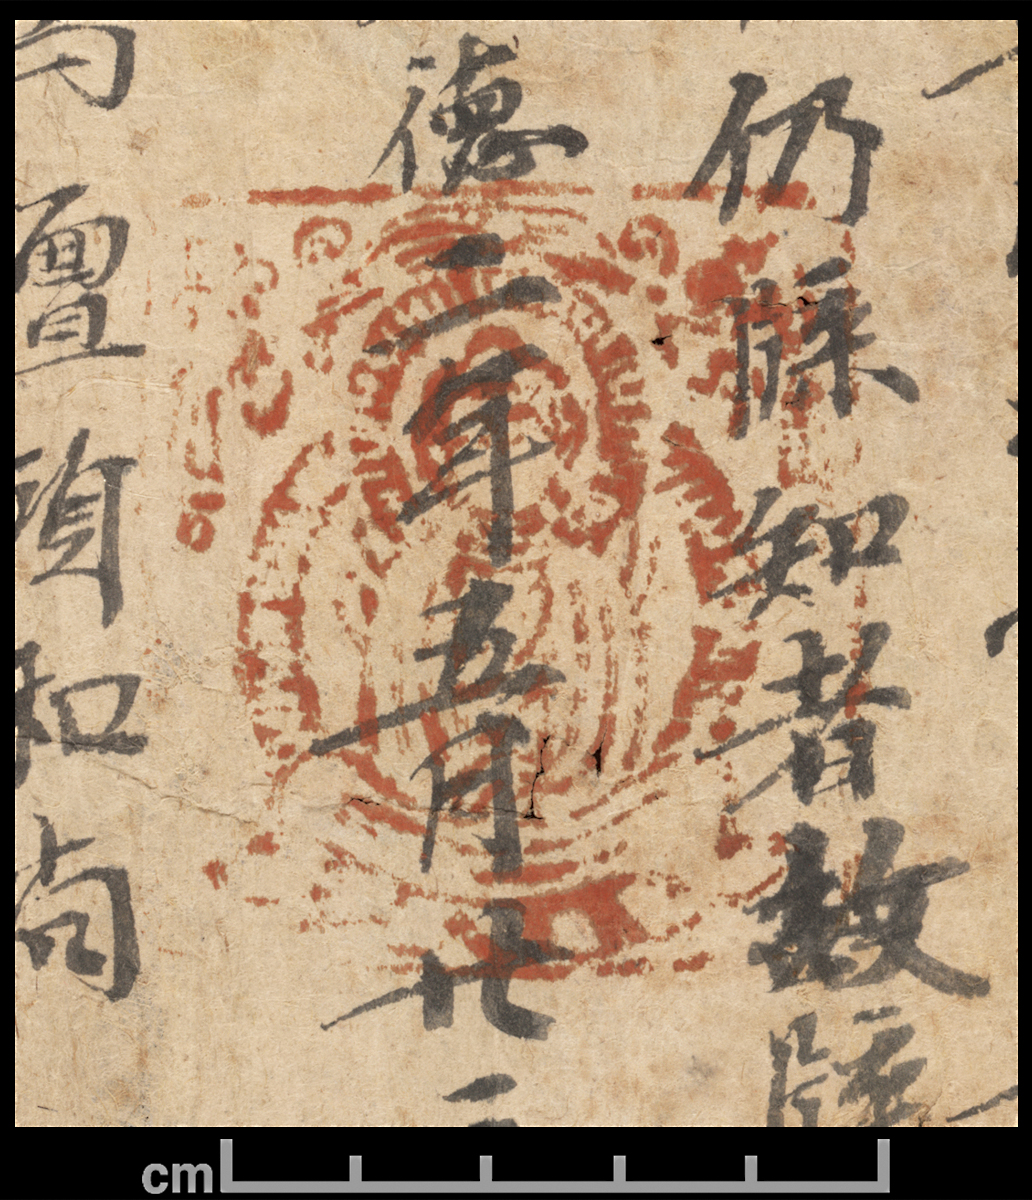 仍牒知者故牒
德二年五月廿
為壇頭和尚
cm